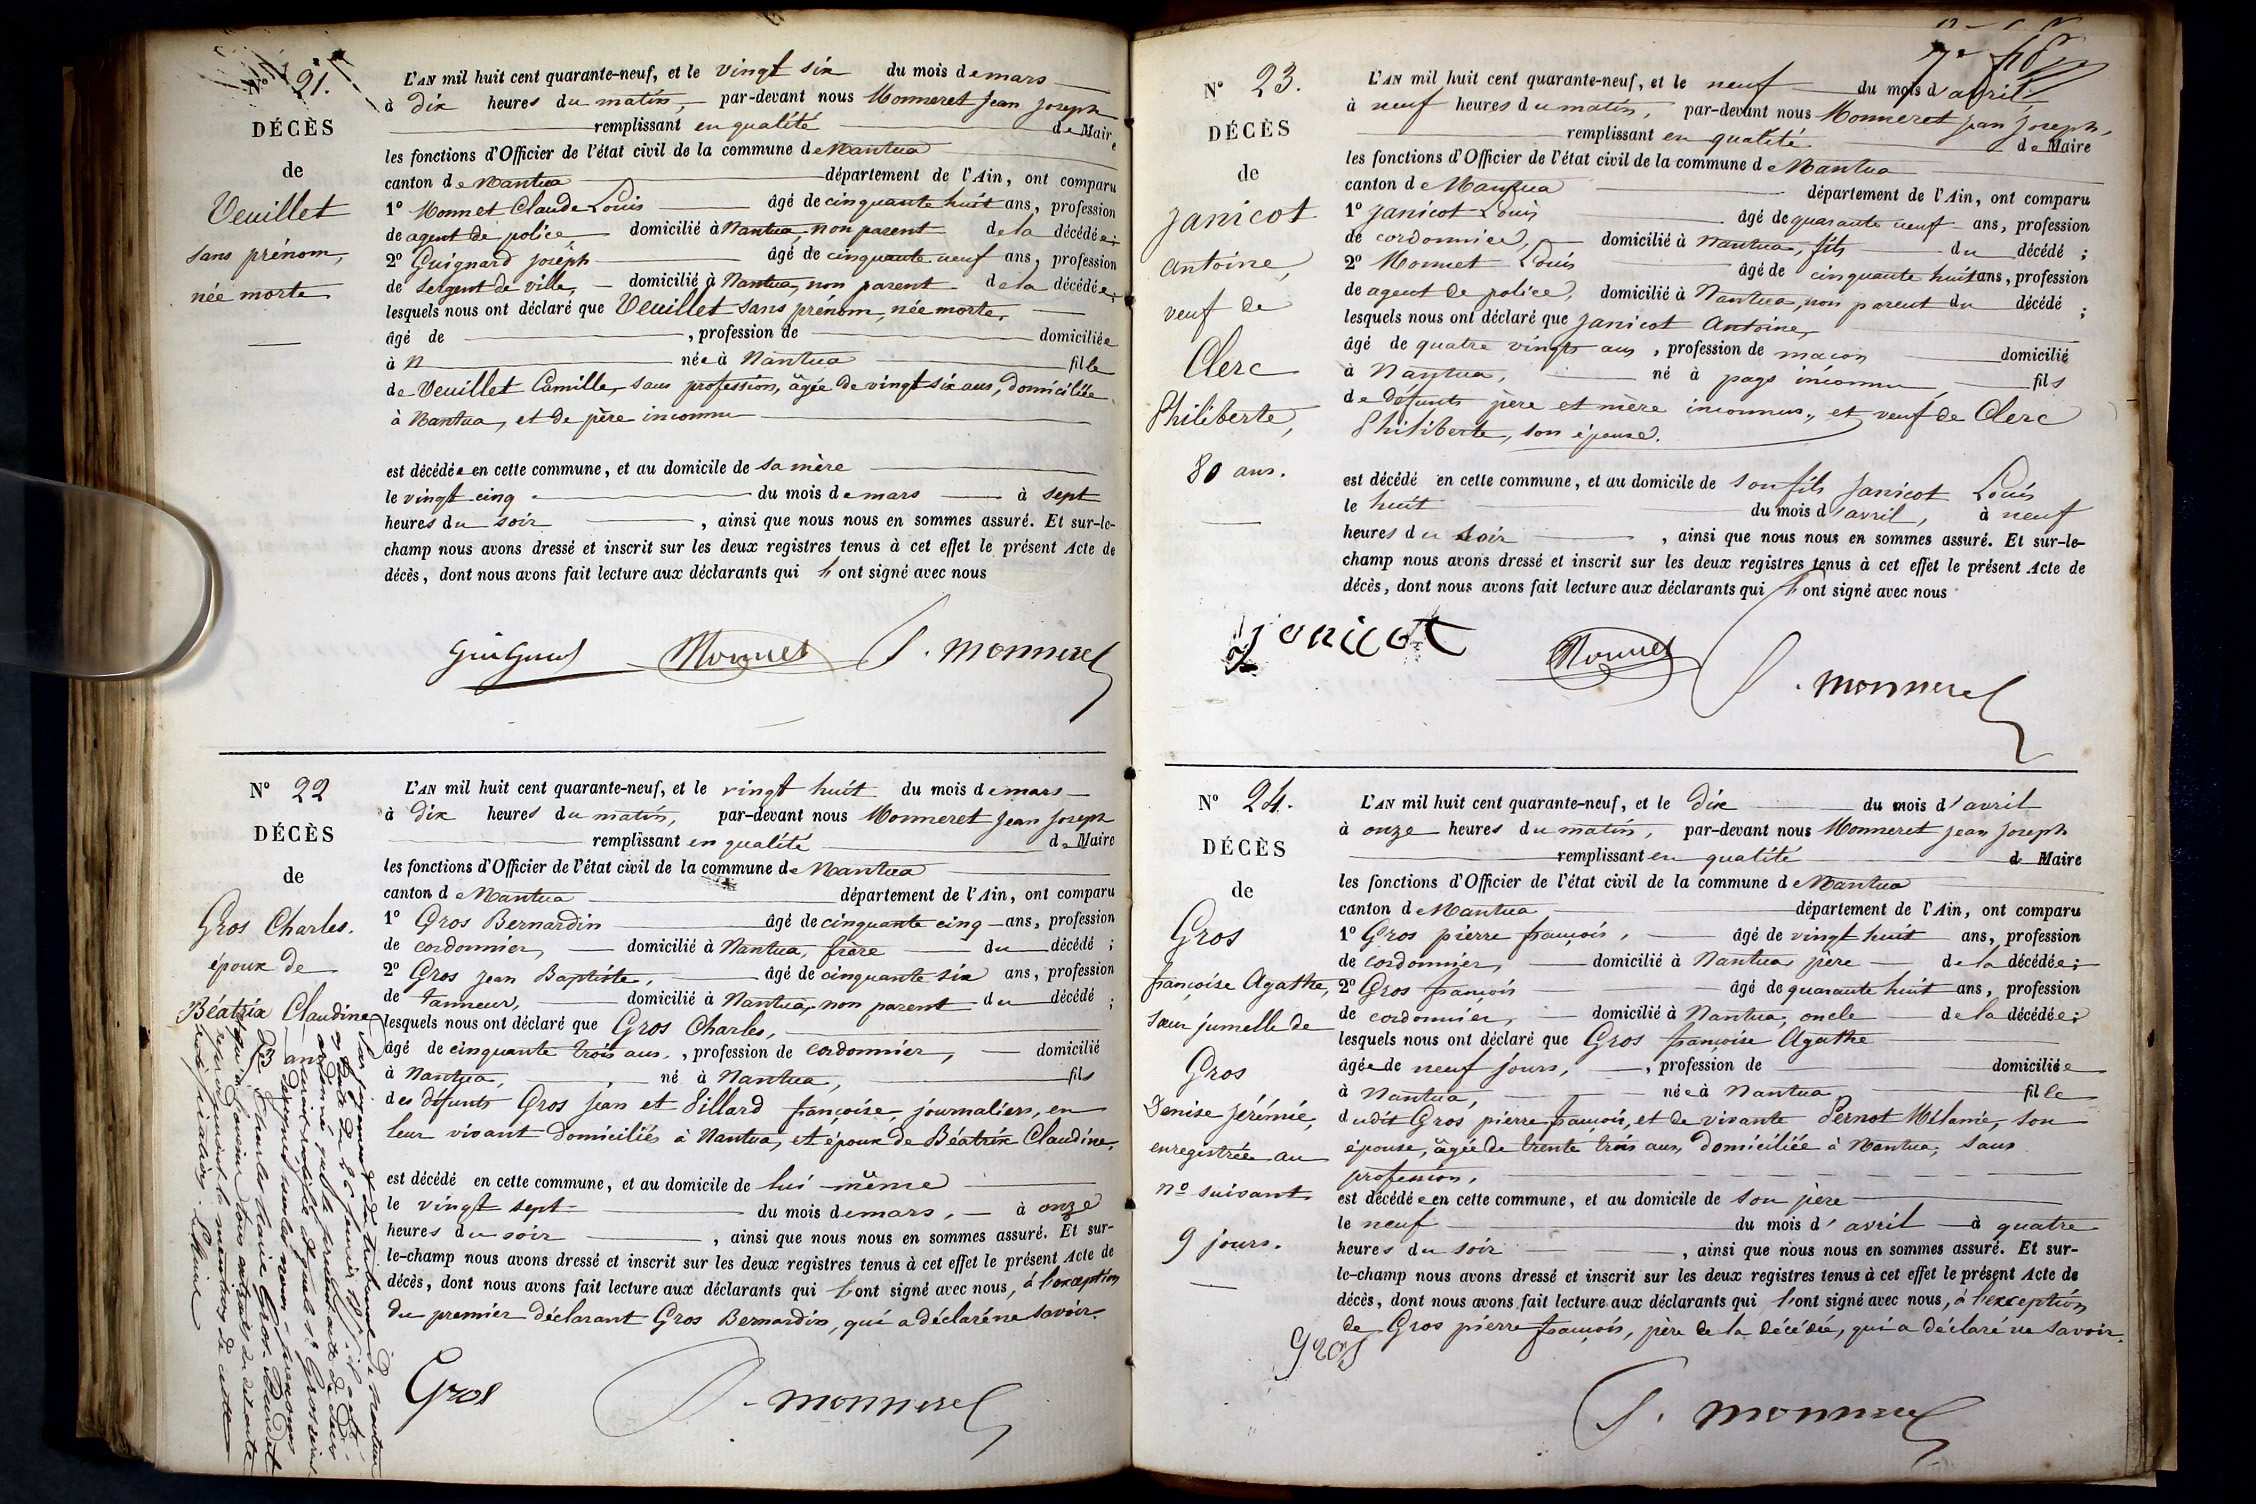 N° 21.
DÉCÈS
de
Veuillet
sans prénom,
née morte
L'AN mil huit cent quarante-neuf, et le vingt six du mois de mars
à dix heures du matin, par-devant nous Monneret Jean Joseph
remplissant en qualité de Maire
les fonctions d'Officier de l'état civil de la commune de Nantua
canton de Nantua département de l'Ain, ont comparu
1° Monnet Claude Louis âgé de cinquante huit ans, profession
de agent de police domicilié à Nantua, non parent de la décédée;
2° Guignard Joseph âgé de cinquante neuf ans, profession
de sergent de ville, domicilié à Nantua, non parent de la décédée;
lesquels nous ont déclaré que Veuillet sans prénom, née morte,
âgé de , profession de domiciliée
à N née à Nantua fille
de Veuillet Camille, sans profession, âgée de vingt six ans, domiciliée
à Nantua, et de père inconnu
est décédée en cette commune, et au domicile de sa mère
le vingt cinq du mois de mars à sept
heures du soir , ainsi que nous nous en sommes assuré. Et sur-le-
champ nous avons dressé et inscrit sur les deux registres tenus à cet effet le présent Acte de
décès, dont nous avons fait lecture aux déclarants qui l'ont signé avec nous
Guignard Monnet J. Monneret
N° 22
DÉCÈS
de
Gros Charles.
époux de
Béatrix Claudine
53 ans
L'AN mil huit cent quarante-neuf, et le vingt huit du mois de mars
à dix heures du matin, par-devant nous Monneret Jean Joseph
remplissant en qualité de Maire
les fonctions d'Officier de l'état civil de la commune de Nantua
canton de Nantua département de l'Ain, ont comparu
1° Gros Bernardin âgé de cinquante cinq ans, profession
de cordonnier, domicilié à Nantua, frère du décédé;
2° Gros Jean Baptiste, âgé de cinquante six ans, profession
de tanneur, domicilié à Nantua, non parent du décédé;
lesquels nous ont déclaré que Gros Charles,
âgé de cinquante trois ans, profession de cordonnier, domicilié
à Nantua, né à Nantua, fils
des défunts Gros Jean et Villard françoise, journaliers, en
leur vivant domiciliés à Nantua, et époux de Béatrix Claudine,
est décédé en cette commune, et au domicile de lui-même
le vingt sept du mois de mars, à onze
heures du soir , ainsi que nous nous en sommes assuré. Et sur-
le-champ nous avons dressé et inscrit sur les deux registres tenus à cet effet le présent Acte de
décès, dont nous avons fait lecture aux déclarants qui l'ont signé avec nous, à l'exception
du premier déclarant Gros Bernardin, qui a déclaré ne savoir.
Gros J. Monneret
Par jugement du tribunal de Nantua
N° 23.
DÉCÈS
de
Janicot
Antoine,
veuf de
Clerc
Philiberte,
80 ans.
L'AN mil huit cent quarante-neuf, et le neuf du mois d'avril
à neuf heures du matin, par-devant nous Monneret Jean Joseph,
remplissant en qualité de Maire
les fonctions d'Officier de l'état civil de la commune de Nantua
canton de Nantua département de l'Ain, ont comparu
1° Janicot Louis âgé de quarante neuf ans, profession
de cordonnier, domicilié à Nantua, fils du décédé;
2° Monnet Louis âgé de cinquante huit ans, profession
de agent de police, domicilié à Nantua, non parent du décédé;
lesquels nous ont déclaré que Janicot Antoine,
âgé de quatre vingts ans, profession de maçon domicilié
à Nantua, né à pays inconnu, fils
de défunts père et mère inconnus, et veuf de Clerc
Philiberte, son épouse.
est décédé en cette commune, et au domicile de son fils Janicot Louis
le huit du mois d'avril, à neuf
heures du soir , ainsi que nous nous en sommes assuré. Et sur-le-
champ nous avons dressé et inscrit sur les deux registres tenus à cet effet le présent Acte de
décès, dont nous avons fait lecture aux déclarants qui l'ont signé avec nous
Janicot Monnet J. Monneret
N° 24.
DÉCÈS
de
Gros
françoise Agathe,
sœur jumelle de
Gros
Denise Jérémie,
enregistrée au
n° suivant.
9 jours.
L'AN mil huit cent quarante-neuf, et le dix du mois d'avril
à onze heures du matin, par-devant nous Monneret Jean Joseph
remplissant en qualité de Maire
les fonctions d'Officier de l'état civil de la commune de Nantua
canton de Nantua département de l'Ain, ont comparu
1° Gros pierre françois, âgé de vingt huit ans, profession
de cordonnier, domicilié à Nantua, père de la décédée;
2° Gros françois âgé de quarante huit ans, profession
de cordonnier, domicilié à Nantua, oncle de la décédée;
lesquels nous ont déclaré que Gros françoise Agathe
âgée de neuf jours, , profession de domiciliée
à Nantua, née à Nantua fille
dudit Gros pierre françois, et de vivante Pernot Mélanie, son
épouse, âgée de trente trois ans, domiciliée à Nantua, sans
profession,
est décédée en cette commune, et au domicile de son père
le neuf du mois d'avril à quatre
heures du soir , ainsi que nous nous en sommes assuré. Et sur-
le-champ nous avons dressé et inscrit sur les deux registres tenus à cet effet le présent Acte de
décès, dont nous avons fait lecture aux déclarants qui l'ont signé avec nous, à l'exception
de Gros pierre françois, père de la décédée, qui a déclaré ne savoir.
Gros
J. Monneret